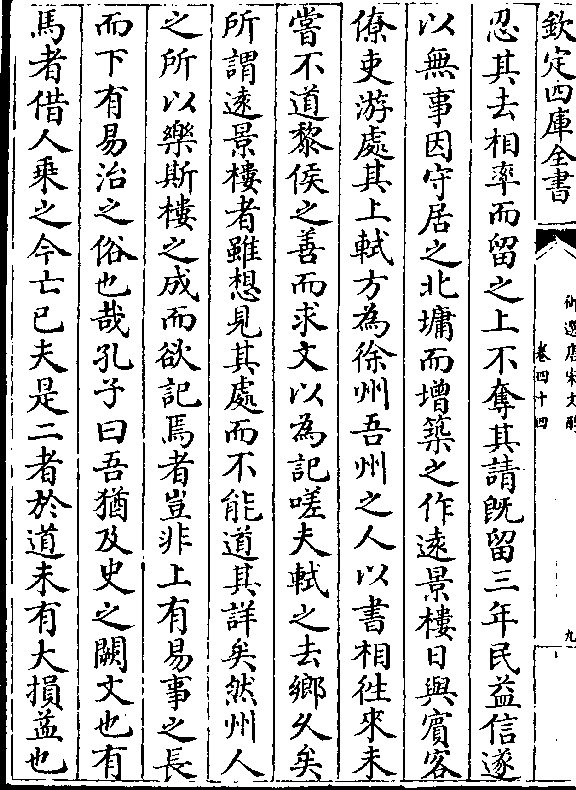 欽定四庫全書
御選唐宋文醇
卷四十四
九
忍其去相率而留之上不奪其請既留三年民益信遂
以無事因守居之北墉而增築之作遠景樓日與賓客
僚吏游處其上軾方為徐州吾州之人以書相徃來未
嘗不道黎侯之善而求文以為記嗟夫軾之去鄉乆矣
所謂遠景樓者雖想見其處而不能道其詳矣然州人
之所以樂斯樓之成而欲記焉者豈非上有易事之長
而下有易治之俗也哉孔子曰吾猶及史之闕文也有
馬者借人乘之今亡已夫是二者於道未有大損益也